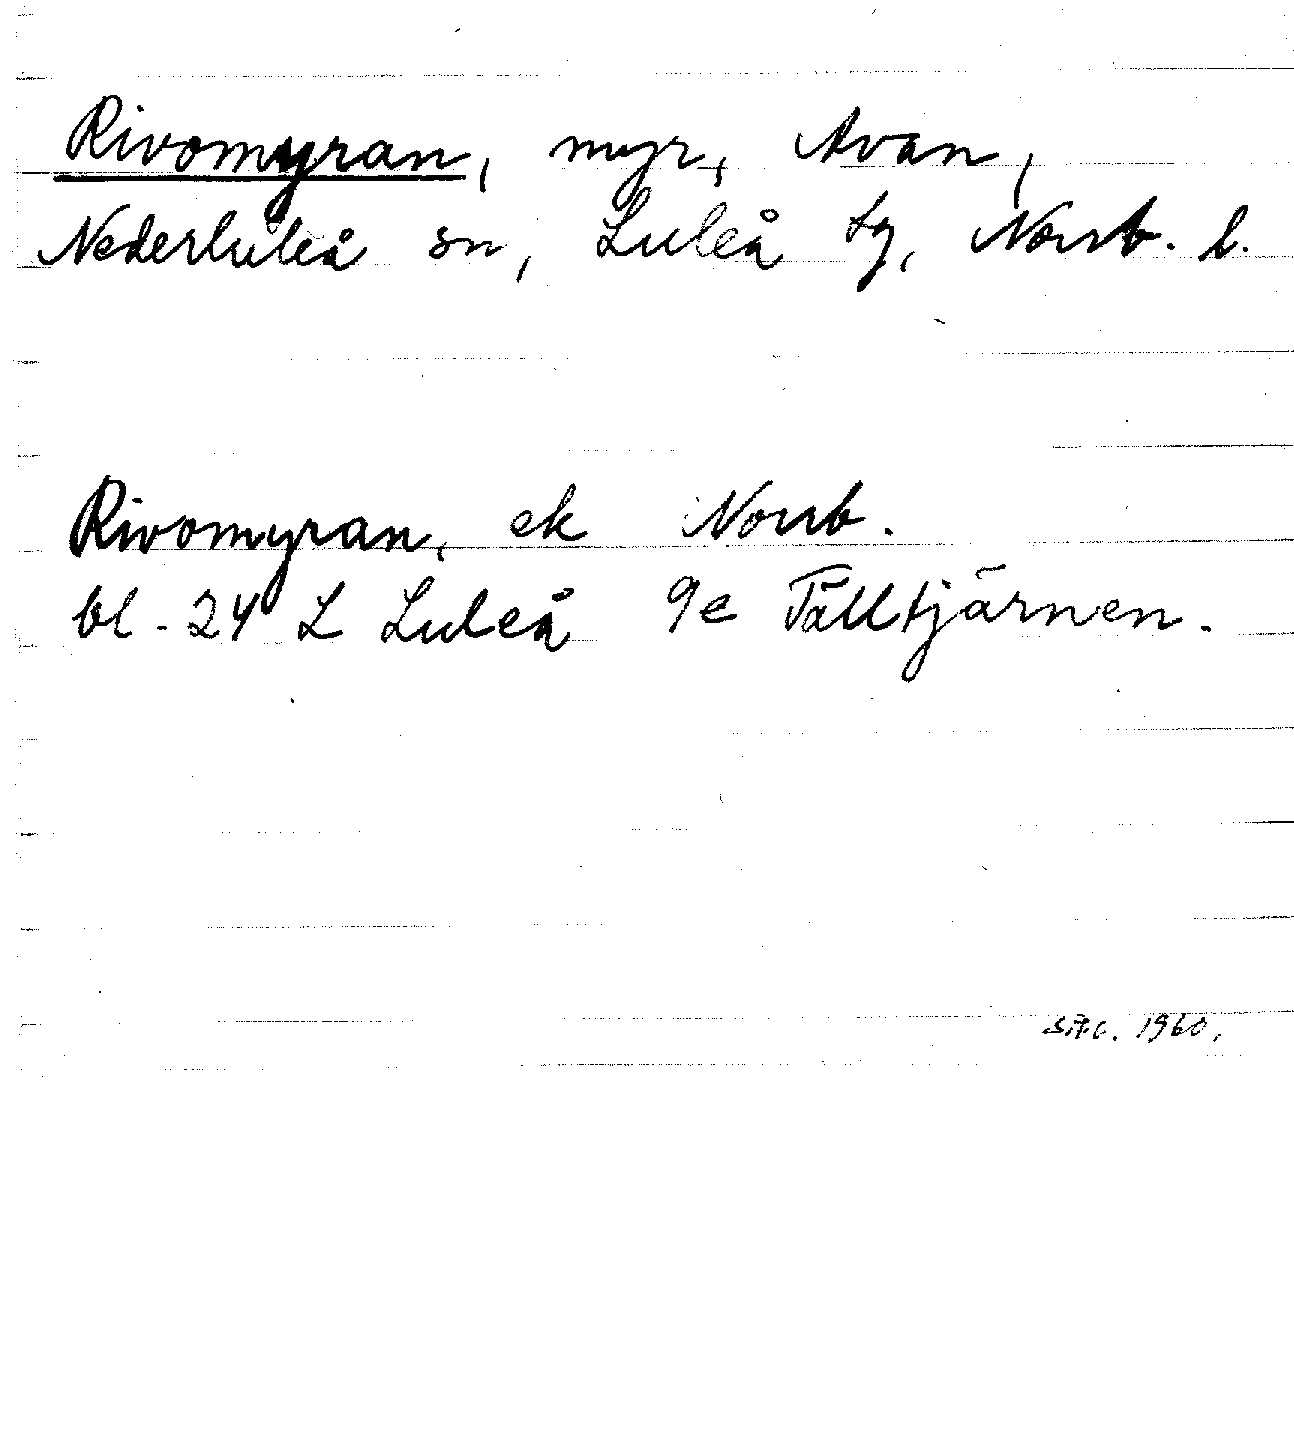 Rivomyran, myr, Avan,
Nederluleå sn, Luleå tg, Norrb. l.
Rivomyran, ek Norrb.
bl. 24 L Luleå 9e Talltjärnen.
1960.